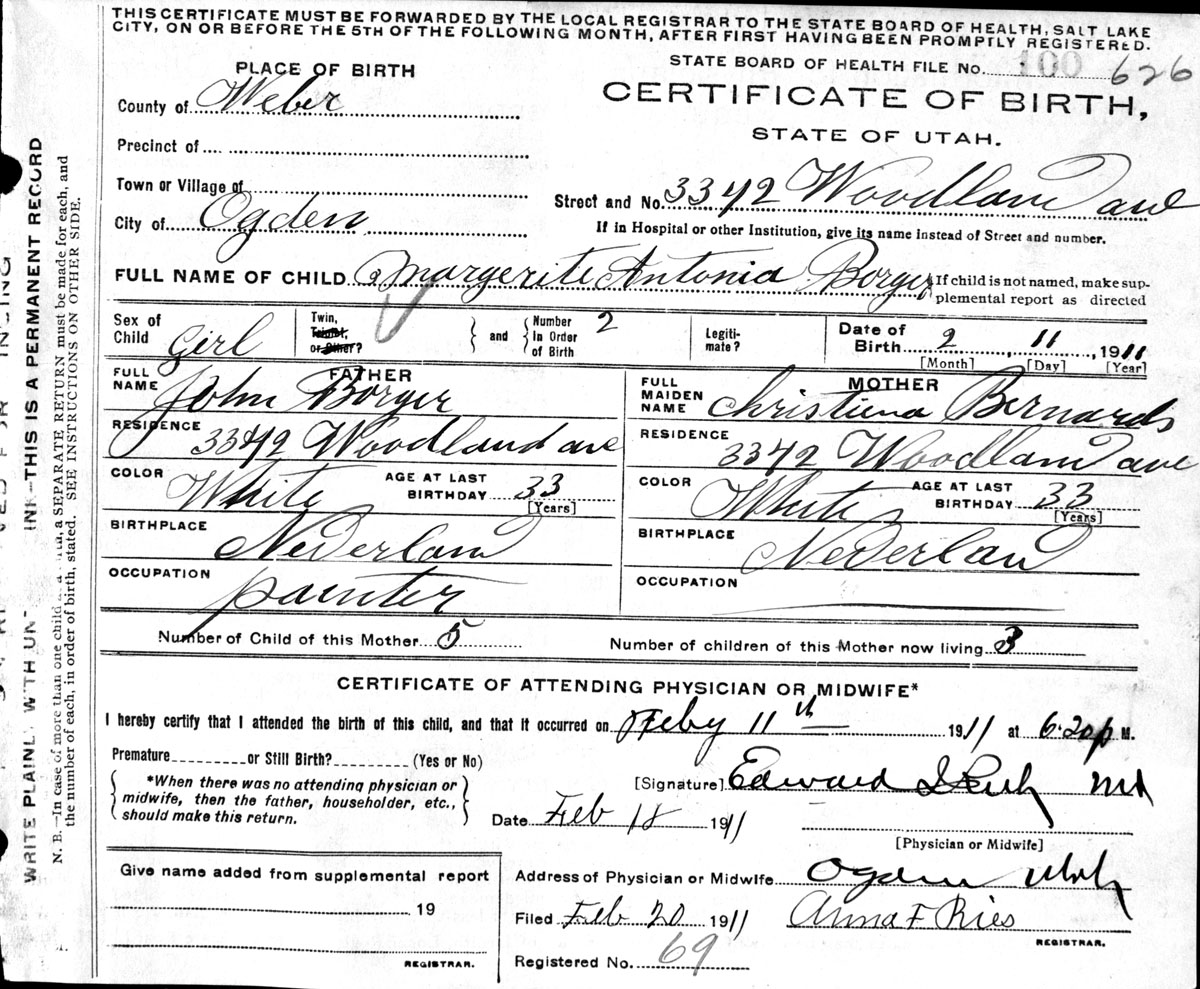 THIS CERTIFICATE MUST BE FORWARDED BY THE LOCAL REGISTRAR TO THE STATE BOARD OF HEALTH, SALT LAKE
CITY, ON OR BEFORE THE 5TH OF THE FOLLOWING MONTH, AFTER FIRST HAVING BEEN PROMPTLY REGISTERED.
STATE BOARD OF HEALTH FILE No. 100 626
PLACE OF BIRTH
CERTIFICATE OF BIRTH,
STATE OF UTAH.
County of Weber
Precinct of
Town or Village of
City of Ogden
Street and No. 3342 Woodland ave
If in Hospital or other Institution, give its name instead of Street and number.
FULL NAME OF CHILD Margerite Antonia Borger
If child is not named, make sup-
plemental report as directed
Sex of Child Girl
Twin, Triplet, or Other?
and
Number In Order of Birth 2
Legiti-mate?
Date of Birth 2 11, 1911
[Month] [Day] [Year]
FATHER
FULL NAME John Borger
RESIDENCE 3342 Woodland ave
COLOR White AGE AT LAST BIRTHDAY 33
[Years]
BIRTHPLACE Nederland
OCCUPATION painter
MOTHER
FULL MAIDEN NAME Christiena Bernards
RESIDENCE 3342 Woodland ave
COLOR White AGE AT LAST BIRTHDAY 33
[Years]
BIRTHPLACE Nederland
OCCUPATION
Number of Child of this Mother 5 Number of children of this Mother now living 3
CERTIFICATE OF ATTENDING PHYSICIAN OR MIDWIFE*
I hereby certify that I attended the birth of this child, and that it occurred on Feby 11th 1911 at 6.20 p M.
Premature or Still Birth? (Yes or No)
*When there was no attending physician or
midwife, then the father, householder, etc.,
should make this return.
[Signature] Edward I Rich MD
Date Feb 18 1911
[Physician or Midwife]
Give name added from supplemental report
19
REGISTRAR.
Address of Physician or Midwife Ogden Utah
Filed Feb 20 1911 Anna F Ries
REGISTRAR.
Registered No. 69
WRITE PLAINLY WITH INK—THIS IS A PERMANENT RECORD
N. B.—In case of more than one child a SEPARATE RETURN must be made for each, and
the number of each, in order of birth, stated. SEE INSTRUCTIONS ON OTHER SIDE.